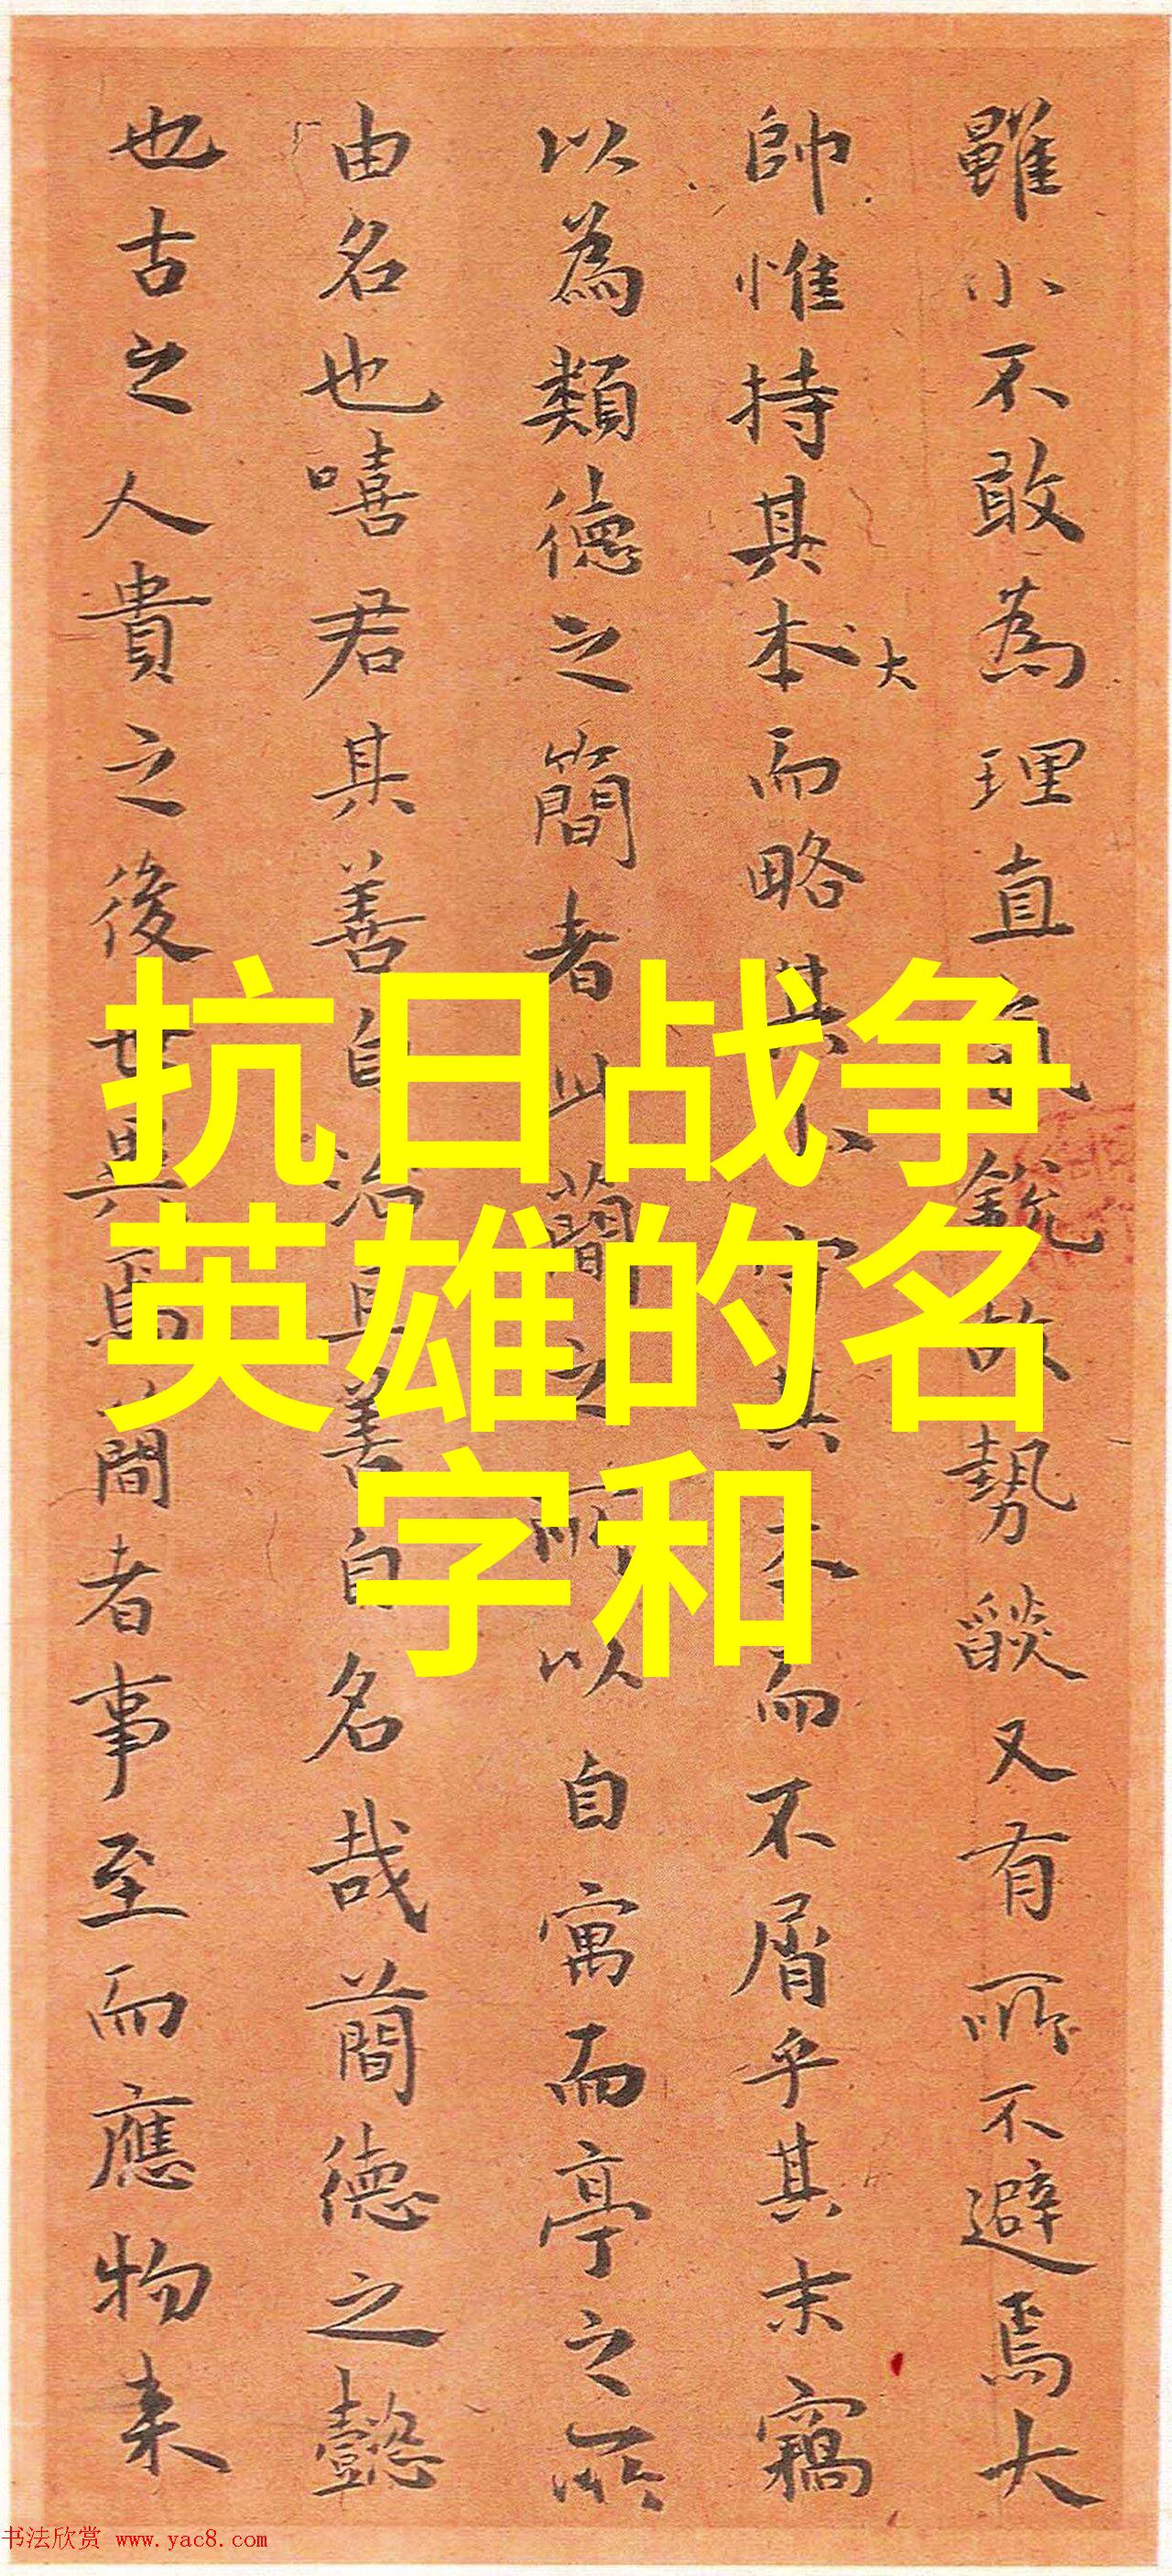 雖小不敢為理直氣銳故勢燄又有所不避焉大
帥惟持其本而略其末守其本而不屑乎其末竊
大
以為類德之簡者此簡之所以自寓而亭之所
由名也嘻君其善自治且善自名哉簡德之懿
也古之人貴之後世異焉簡者事至而應物来
抗日战争
英雄的名
字和
书法欣赏 www.yac8.com